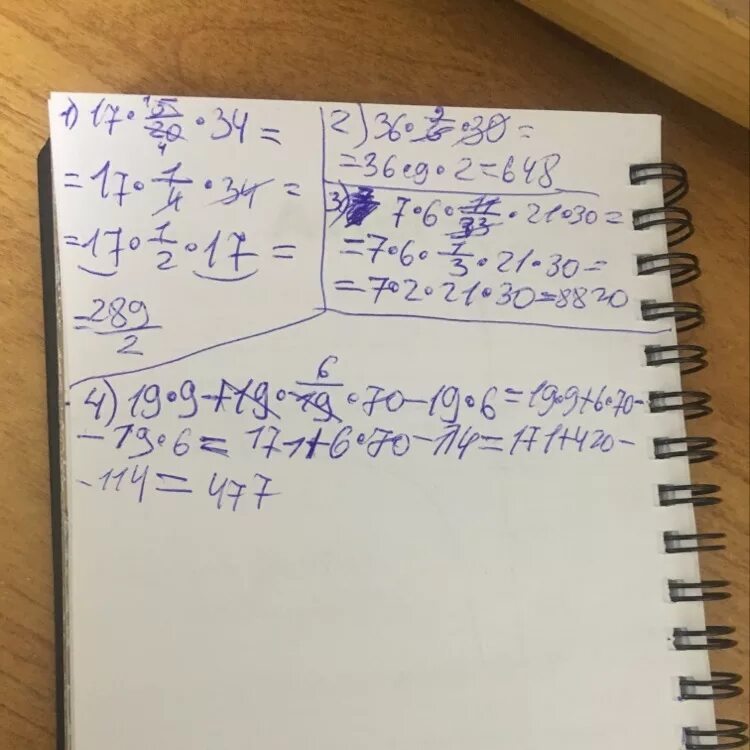 1) 17 · 5/20 · 34 =
= 17 · 1/4 · 34 =
= 17 · 1/2 · 17 =
= 289/2
2) 36 · 9/ · 30 =
= 36 · 9 · 2 = 648
3) 7 · 6 · 11/33 · 21 · 30 =
= 7 · 6 · 1/3 · 21 · 30 =
= 7 · 2 · 21 · 30 = 8820
4) 19 · 9 + 19 · 6/19 · 70 - 19 · 6 = 19 · 9 + 6 · 70 -
- 19 · 6 = 171 + 6 · 70 - 114 = 171 + 420 -
- 114 = 477